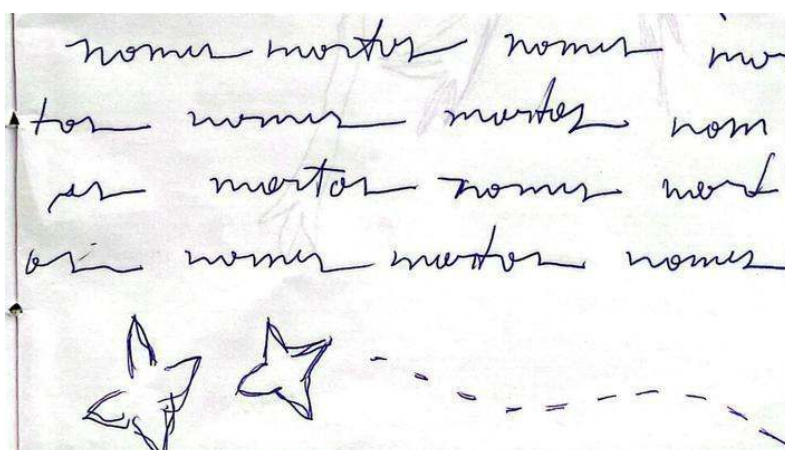 nomes mortos nomes mor
tos nomes mortos nom
es mortos nomes mort
os nomes mortos nomes